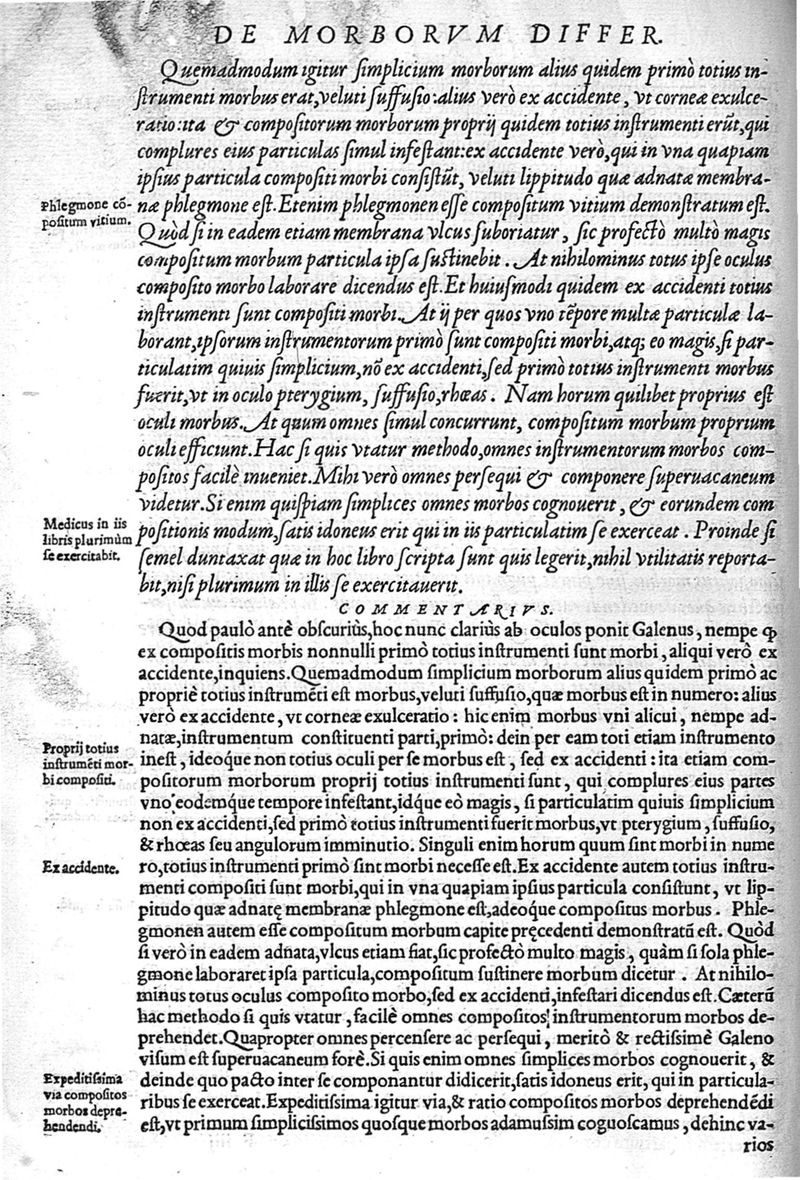 DE MORBORVM DIFFER.
Quemadmodum igitur ſimplicium morborum alius quidem primò totius in-
ſtrumenti morbus erat,veluti ſuffuſio:alius verò ex accidente, vt corneæ exulce-
ratio:ita & compoſitorum morborum proprij quidem totius inſtrumenti erũt,qui
complures eius particulas ſimul infeſtant:ex accidente verò,qui in vna quapiam
ipſius particula compoſiti morbi conſiſtũt, veluti lippitudo quæ adnatæ membra-
Phlegmone cõ-
poſitum vitium.
næ phlegmone eſt.Etenim phlegmonen eſſe compoſitum vitium demonſtratum eſt.
Quòd ſi in eadem etiam membrana vlcus ſuboriatur, ſic profectò multò magis
compoſitum morbum particula ipſa ſuſtinebit. At nihilominus totus ipſe oculus
compoſito morbo laborare dicendus eſt.Et huiuſmodi quidem ex accidenti totius
inſtrumenti ſunt compoſiti morbi.At ij per quos vno tẽpore multæ particulæ la-
borant,ipſorum inſtrumentorum primò ſunt compoſiti morbi,atq; eo magis,ſi par-
ticulatim quiuis ſimplicium,nõ ex accidenti,ſed primò totius inſtrumenti morbus
fuerit,vt in oculo pterygium, ſuffuſio,rhœas. Nam horum quilibet proprius eſt
oculi morbus.At quum omnes ſimul concurrunt, compoſitum morbum proprium
oculi efficiunt.Hac ſi quis vtatur methodo,omnes inſtrumentorum morbos com-
poſitos facilè inueniet.Mihi verò omnes perſequi & componere ſuperuacaneum
videtur.Si enim quiſpiam ſimplices omnes morbos cognouerit, & eorundem com
Medicus in iis
libris plurimùm
ſe exercitabit.
poſitionis modum,ſatis idoneus erit qui in iis particulatim ſe exerceat. Proinde ſi
ſemel duntaxat quæ in hoc libro ſcripta ſunt quis legerit,nihil vtilitatis reporta-
bit,niſi plurimum in illis ſe exercitauerit.
COMMENTARIVS.
Quod paulò antè obſcuriùs,hoc nunc clariùs ab oculos ponit Galenus, nempe ꝙ
ex compoſitis morbis nonnulli primò totius inſtrumenti ſunt morbi, aliqui verò ex
accidente,inquiens.Quemadmodum ſimplicium morborum alius quidem primò ac
propriè totius inſtrumẽti eſt morbus,veluti ſuffuſio,quæ morbus eſt in numero: alius
verò ex accidente, vt corneæ exulceratio: hic enim morbus vni alicui, nempe ad-
natæ,inſtrumentum conſtituenti parti,primò: dein per eam toti etiam inſtrumento
Proprij totius
inſtrumẽti mor-
bi compoſiti.
ineſt, ideoque non totius oculi per ſe morbus eſt, ſed ex accidenti: ita etiam com-
poſitorum morborum proprij totius inſtrumenti ſunt, qui complures eius partes
vno eodemque tempore infeſtant,idque eò magis, ſi particulatim quiuis ſimplicium
non ex accidenti,ſed primò totius inſtrumenti fuerit morbus,vt pterygium, ſuffuſio,
& rhœas ſeu angulorum imminutio. Singuli enim horum quum ſint morbi in nume
Ex accidente.
ro,totius inſtrumenti primò ſint morbi neceſſe eſt.Ex accidente autem totius inſtru-
menti compoſiti ſunt morbi,qui in vna quapiam ipſius particula conſiſtunt, vt lip-
pitudo quæ adnatę membranæ phlegmone eſt,adeoque compoſitus morbus. Phle-
gmonen autem eſſe compoſitum morbum capite pręcedenti demonſtratũ eſt. Quòd
ſi verò in eadem adnata,vlcus etiam fiat,ſic profectò multo magis, quàm ſi ſola phle-
gmone laboraret ipſa particula,compoſitum ſuſtinere morbum dicetur. At nihilo-
minus totus oculus compoſito morbo,ſed ex accidenti,infeſtari dicendus eſt.Cæterũ
hac methodo ſi quis vtatur, facilè omnes compoſitos inſtrumentorum morbos de-
prehendet.Quapropter omnes percenſere ac perſequi, meritò & rectiſſimè Galeno
viſum eſt ſuperuacaneum forè.Si quis enim omnes ſimplices morbos cognouerit, &
Expeditiſsima
via compoſitos
morbos depre-
hendendi.
deinde quo pacto inter ſe componantur didicerit,ſatis idoneus erit, qui in particula-
ribus ſe exerceat.Expeditiſsima igitur via,& ratio compoſitos morbos deprehendẽdi
eſt,vt primum ſimpliciſſimos quoſque morbos adamuſſim coguoſcamus, dehinc va-
rios